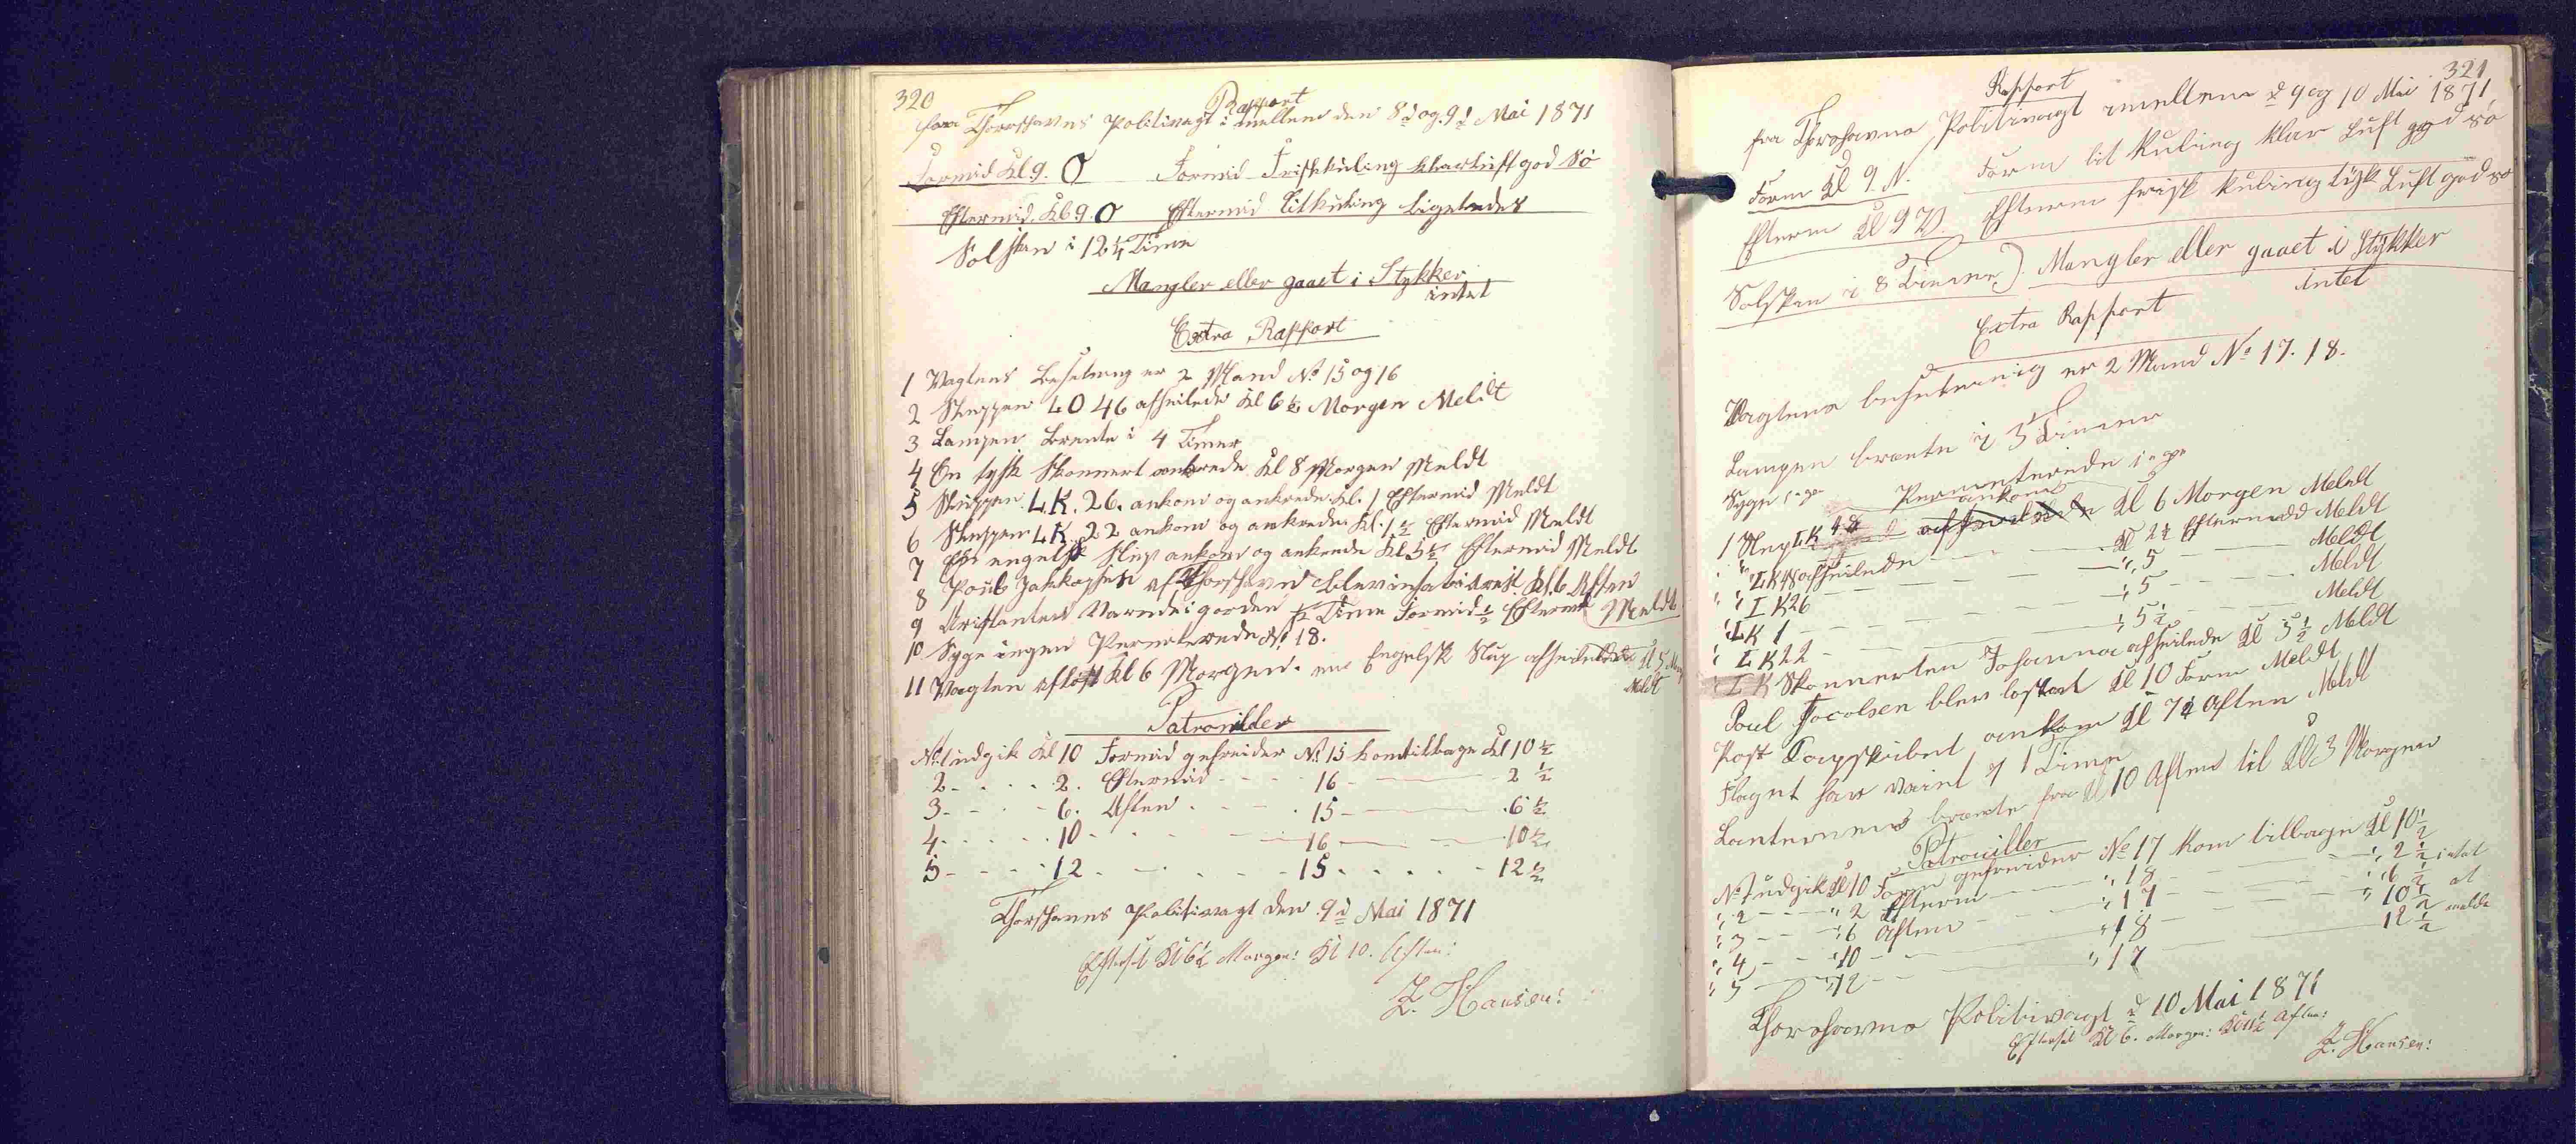 320
Rapport
fra Thorshavns Politivagt i mellem den 8d og 9d Mai 1871
Formid Kl. 9. O Formid Friskkuling klarluft god Sö
Eftermid. Kl. 9. O Eftermid Litkuling ligeledes
Solsken i 12¼ Time
Mangler eller gaaet i Stykker
intet
Extra Rapport
1 Vagtens Besetning er 2 Mand No 15 og 16
2 Sluppen LO 46 afseilede Kl 6½ Morgen Meldt
3 Lampen Brente i 4 Timer
4 En tysk Skonnert ankrede Kl 8 Morgen Meldt
5 Sluppen LK. 26. ankom og ankrede Kl. 1 Eftermid Meldt
6 Sluppen LK. 22 ankom og ankrede Kl. 1½ Eftermid Meldt
7 En engelsk Slup ankom og ankrede Kl 5½ Eftermid Meldt
8 Poul Jakkopsen af Thorshavn blev insat i arest Kl. 6 Aften
9 Aristanten Varede i gorden ½ Time Formid ½ Eftermid Meldt
10 Syge ingen Permeterede No 18.
11 Vagten aflöst Kl 6 Morgen. en Engelsk Slup afseilede Kl 5 Mor
Meldt
Patrouilder
No 1 udgik Kl 10 Formid gefreider No 15 kom tilbage Kl 10½
2 - - - 2. Eftermid - - - 16 - 2½
3 - - - 6. Aften - - - 15 - 6½
4 - - - 10 - - - 16 - 10½
5 - - - 12 - - - 15 - - - 12½
Thorshavns Politivagt den 9d Mai 1871
Efterset Kl 6½ Morgen: Kl 10. Aften:
Z. Hansen:
321
Rapport
fra Thorshavns Politivagt imellem d 9 og 10 Mai 1871
Form Kl 9 N. Form lit Kuling klar Luft god sö
Efterm Kl 9 V. Efterm frisk Kuling tysk Luft god sö
Solsken i 8 Timer) Mangler eller gaaet i Stykker
intet
Extra Rapport
Vagtens beseternig er 2 Mand No 17. 18.
Lampen brente i 5 Timer
Syge inge Permenterede inge
ankom
1 Slup LK 42 afseilede Kl 6 Morgen Meldt
" " LK 48 afseilede - - - Kl 2½ Eftermidd Meldt
" " LK 26 - - - " 5 - - - Meldt
" LK 1 - - - " 5 - - - Meldt
" LK 22 - - - " 5½ - - - Meldt
LK Skonnerten Johanna afseilede Kl 5½ Meldt
Poul Jocolsen blev loslatt Kl 10 Form Meldt
Post Dampskibet ankom Kl 7¼ Aften Meldt
Flaget har vaint i 1 Time
Lanternen brente fra Kl 10 Aften til Kl 3 Morgen
Patrouiller
No 1 udgik Kl 10 Form gefreider No 17 kom tilbage Kl 10½
" 2 - - - " 2 Efterm - - - " 18 - - - " 2½ intet
" 3 - - - " 6 Aften - - - " 17 - - - " 6½ at
" 4 - - - " 10 - - - " 18 - - - " 10½ melde
" 5 - - - " 12 - - - " 17 - - - 12½
Thorshavns Politivagt d 10 Mai 1871
Efterset Kl 6. Morgen: Kl 11½ Aften:
Z. Hansen: